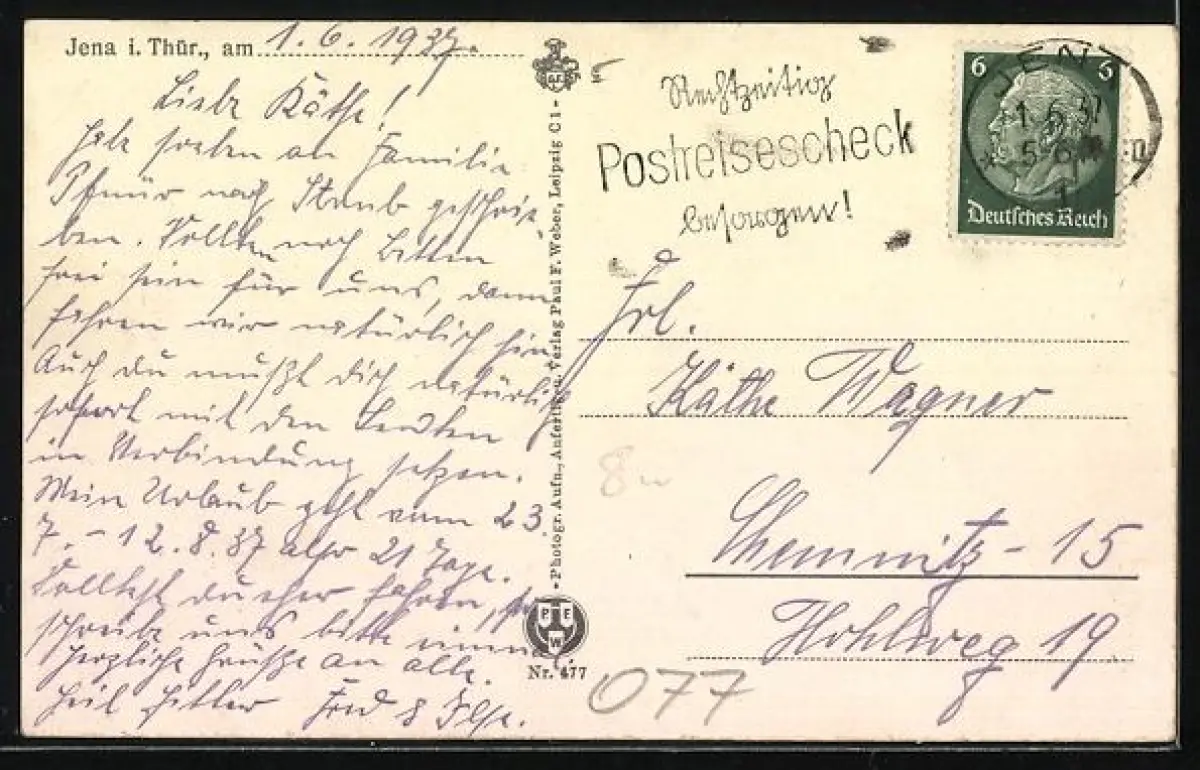 Jena i. Thür., am 1.6.1937.
Liebe Käthe!
Habe soeben an Familie
Pfnür nach Staub geschrie-
ben. Sollten noch Betten
frei sein für uns, dann
fahren wir natürlich hin.
Auch du mußt dich natürlich
sofort mit den Leuten
in Verbindung setzen.
Mein Urlaub geht vom 23.
7. - 12.8.37 also 21 Tage.
Solltest du eher fahren, so
schreibe uns bitte
Herzliche Grüße an alle.
Heil Hitler &
- Photogr. Aufn., Anfertigu. Verlag Paul F. Weber, Leipzig C1 -
P F W
Nr. 477
Rechtzeitig
Postreisescheck
besorgen!
JENA
1.6.37
6 6
Deutsches Reich
Frl.
Käthe Wagner
Chemnitz - 15
Hohlweg 19.
077